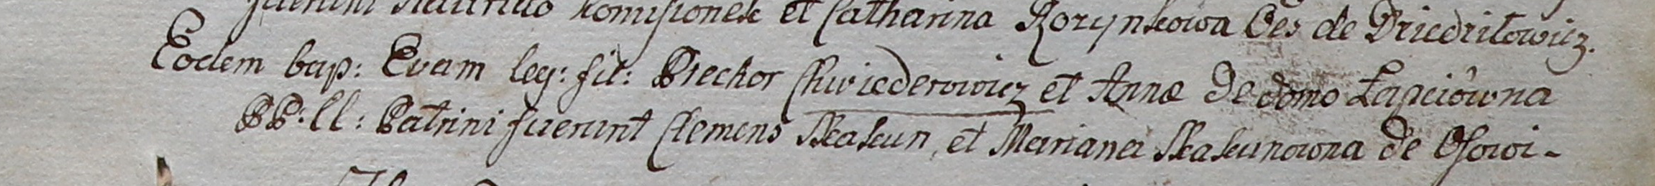 fuerunt Komisionek et Catharina Rozynkowa Oes de Dziedziłowicz.
Eodem bap: Evam leg: fil: Prechor Chwiederowicz et Anna De domo Łapciówna
PP: ll: Patrini fuerunt Clemens Skakun et Mariana Skakunowna de Osowi-